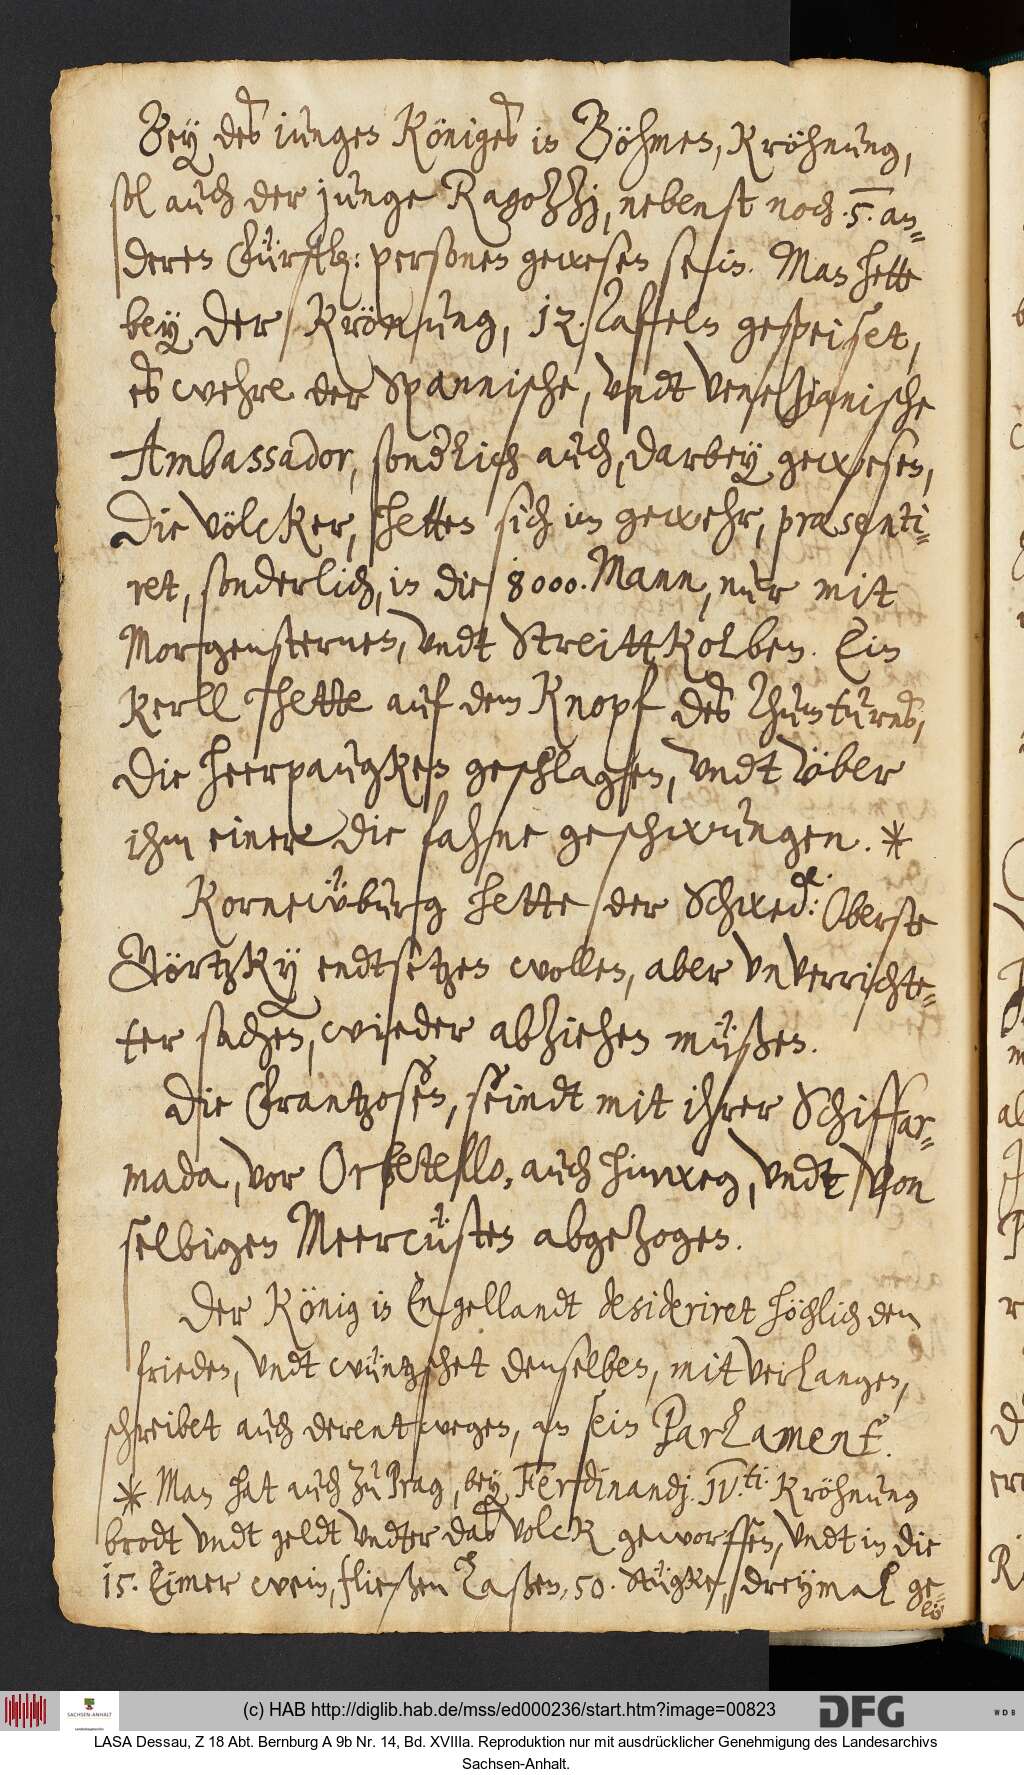 Bey des iungen Königes in Böhmen, Kröhnung,
sol auch der junge Ragozzj, nebenst noch .5. an=
deren Fürstl: personen gewesen sein. Man hette
bey der Krönung, 12. Taffeln gespeiset,
es wehre der Spannische, vndt Venezianische
Ambassador, sonderlich auch, darbey gewesen,
Die völcker, hetten sich im gewehr, præsenti=
ret, sonderlich, in die 8000. Mann, nur mit
Morgensternen, vndt Streittkolben. Ein
kerll hette auf dem Knopf des Thumturns,
die heerpaugken geschlagen, vndt vber
ihm einer die fahne geschwungen. *
Korneüburg hette der Schwed: Oberste
Wörtzky endtsetzen wollen, aber vnverrichte=
ter sachen, wieder abziehen müßen.
Die Frantzosen, seindt mit ihrer Schiffar=
mada, vor Orbetello, auch hinweg, vndt von
selbigen Meercüsten abgezogen.
Der König in Engellandt desideriret höchlich den
frieden, vndt wüntzschet denselben, mit verlangen,
schreibet auch derentwegen, an sein Parlament.
* Man hat auch zu Prag, bey Ferdinandj. IV.ti. Kröhnung
brodt vndt geldt vndter das volck geworffen, vndt in die
15. Eimer wein, fließen laßen, 50. Stügke, dreymal ge=
lö
(c) HAB http://diglib.hab.de/mss/ed000236/start.htm?image=00823
SACHSEN-ANHALT
DFG
WDB
LASA Dessau, Z 18 Abt. Bernburg A 9b Nr. 14, Bd. XVIIIa. Reproduktion nur mit ausdrücklicher Genehmigung des Landesarchivs
Sachsen-Anhalt.